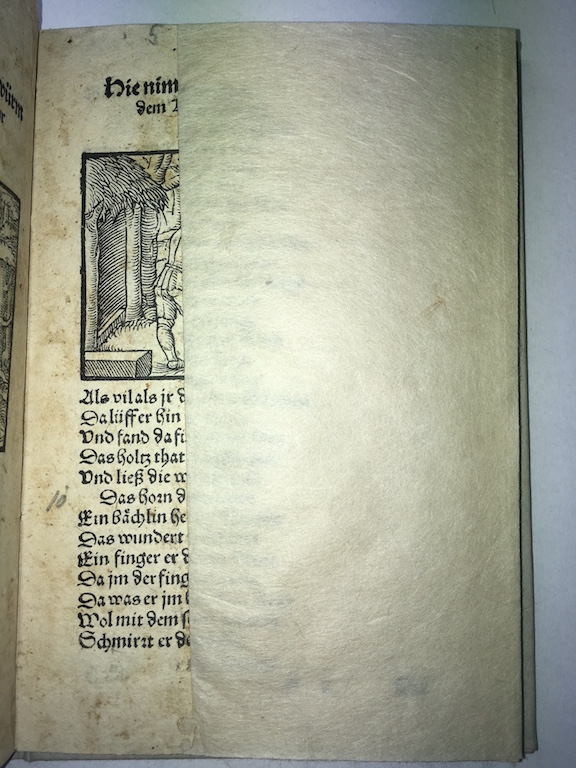 5
Hie nim
dem
Als vil als jr d
Da lüff er hin
Vnd fand da fü
Das holtz that
Vnd ließ die w
Das horn d
10
Ein bächlin he
Das wundert
Ein finger er d
Da jm der fing
Da was er jm
Wol mit dem s
Schmirt er de